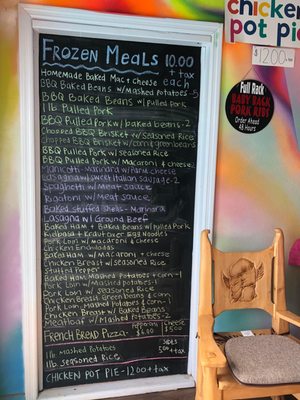 FROZEN MEALS 10.00
+ tax
each
Homemade Baked Mac + Cheese
BBQ Baked Beans w/ mashed Potatoes-5
BBQ Baked Beans w/ Pulled Pork
1 lb Pulled Pork
BBQ Pulled Pork w/ baked beans-2
Chopped BBQ Brisket w/ Seasoned Rice
Chopped BBQ Brisket w/ corn + green beans
BBQ Pulled Pork w/ Seasoned Rice
BBQ Pulled Pork w/ Macaroni & cheese
Manicotti-Marinara w/ Parm cheese
Lasagna w/ Sweet Italian Sausage-2
Spaghetti w/ Meat Sauce
Rigatoni w/ Meat Sauce
Baked Stuffed Shells-Marinara
Lasagna w/ Ground Beef
Baked Ham + Baked Beans w/ Pulled Pork
Kielbasa + Kraut over Egg Noodles
Pork Loin w/ Macaroni & cheese
Chicken Enchiladas
Baked Ham w/ Macaroni + Cheese
Chicken Breast w/ Seasoned Rice
Stuffed Pepper
Baked Ham, Mashed Potatoes + corn-1
Pork Loin w/ Mashed Potatoes-1
Pork Loin w/ Seasoned Rice
Chicken Breast Green beans & corn
Chicken Breast, Mashed Potatoes & corn
Chicken Breast w/ Baked Beans
Meatloaf w/ Mashed Potatoes-2
FRENCH BREAD PIZZA-
Pepperoni
$6.00
Cheese
$5.00
1 lb Mashed Potatoes
1 lb Seasoned Rice
SIDES
5.00 + tax
CHICKEN POT PIE-12.00 + tax
chicken
pot pie
$12.00
Full Rack
BABY BACK
PORK RIBS
Order Ahead
48 Hours